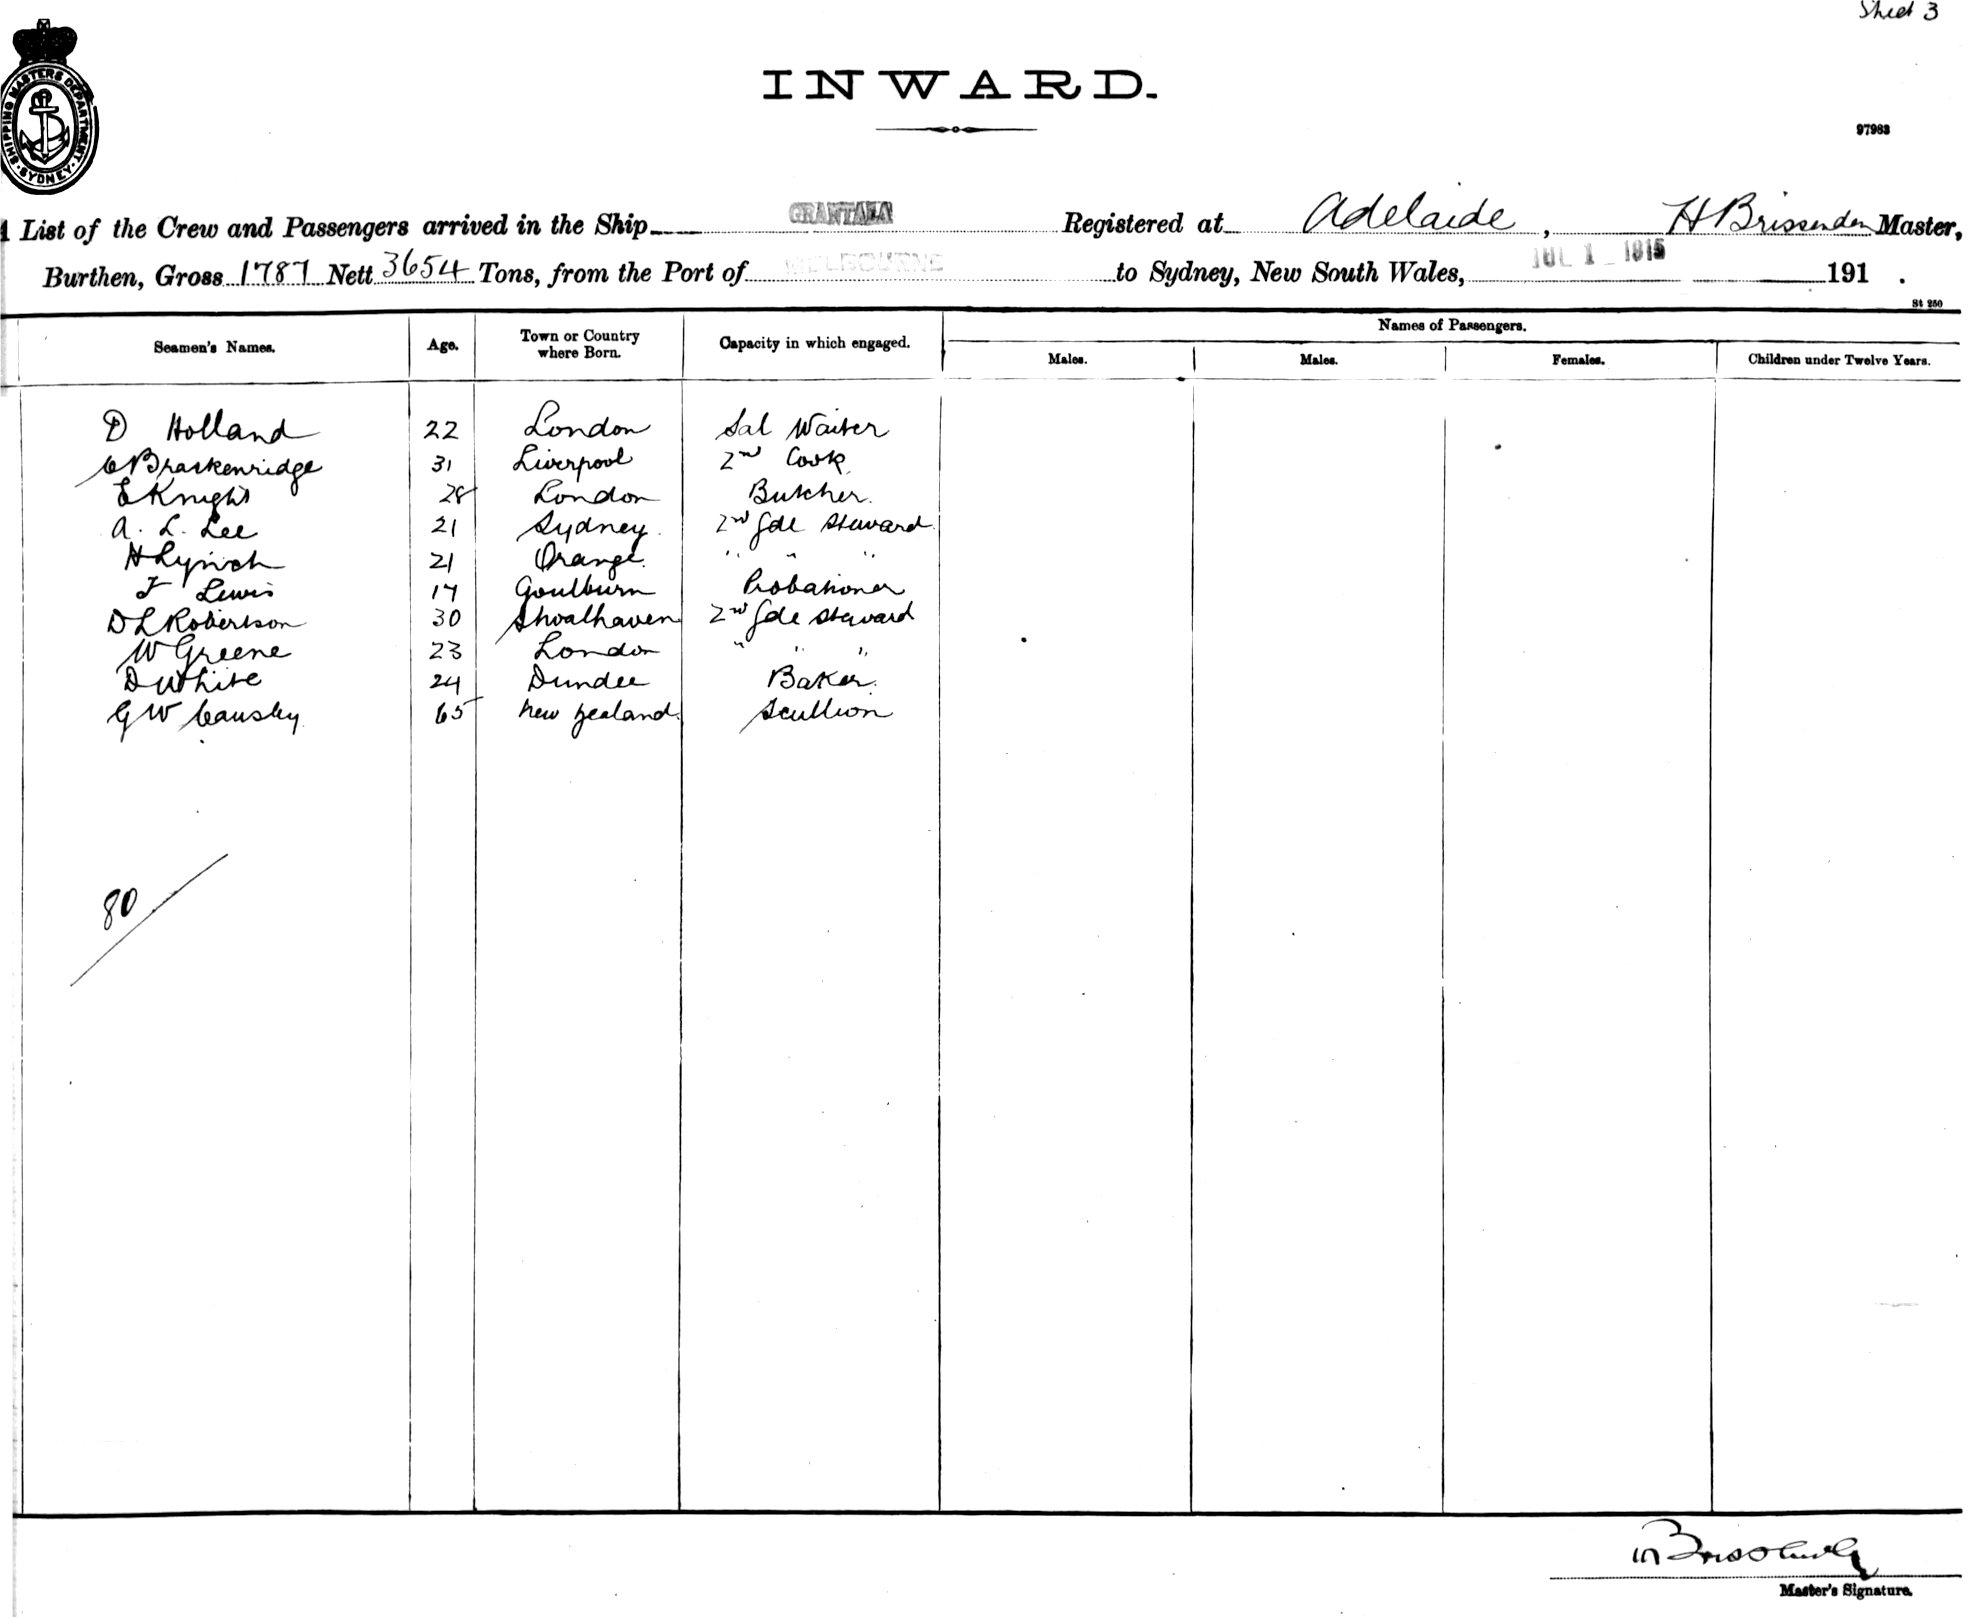 Sheet 3
SHIPPING MASTERS DEPARTMENT · SYDNEY ·
INWARD.
97983
List of the Crew and Passengers arrived in the Ship GRANTALA Registered at Adelaide, H Brissenden Master,
Burthen, Gross 1787 Nett 3654 Tons, from the Port of MELBOURNE to Sydney, New South Wales, JUL 1 - 1915 191 .
St 250
Seamen's Names. Age. Town or Country where Born. Capacity in which engaged. Names of Passengers.
Males. Males. Females. Children under Twelve Years.
D Holland 22 London Sal Waiter
C Brackenridge 31 Liverpool 2nd Cook
E Knight 28 London Butcher.
A. L. Lee 21 Sydney. 2nd Gde Steward
H Lynch 21 Orange. " " "
F Lewis 17 Goulburn Probationer
D L Robertson 30 Shoalhaven 2nd Gde Steward
W Greene 23 London " " "
D White 24 Dundee Baker.
G W Causley 65 New Zealand. Scullion
80
Master's Signature.